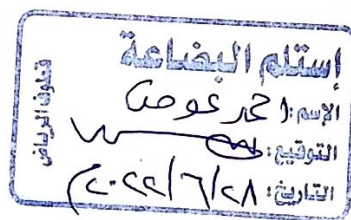 إستلم البضاعة
الإسم: احمد عوض
التوقيع:
التاريخ: ٢٠٢٢/٦/٢٨م
الرياض